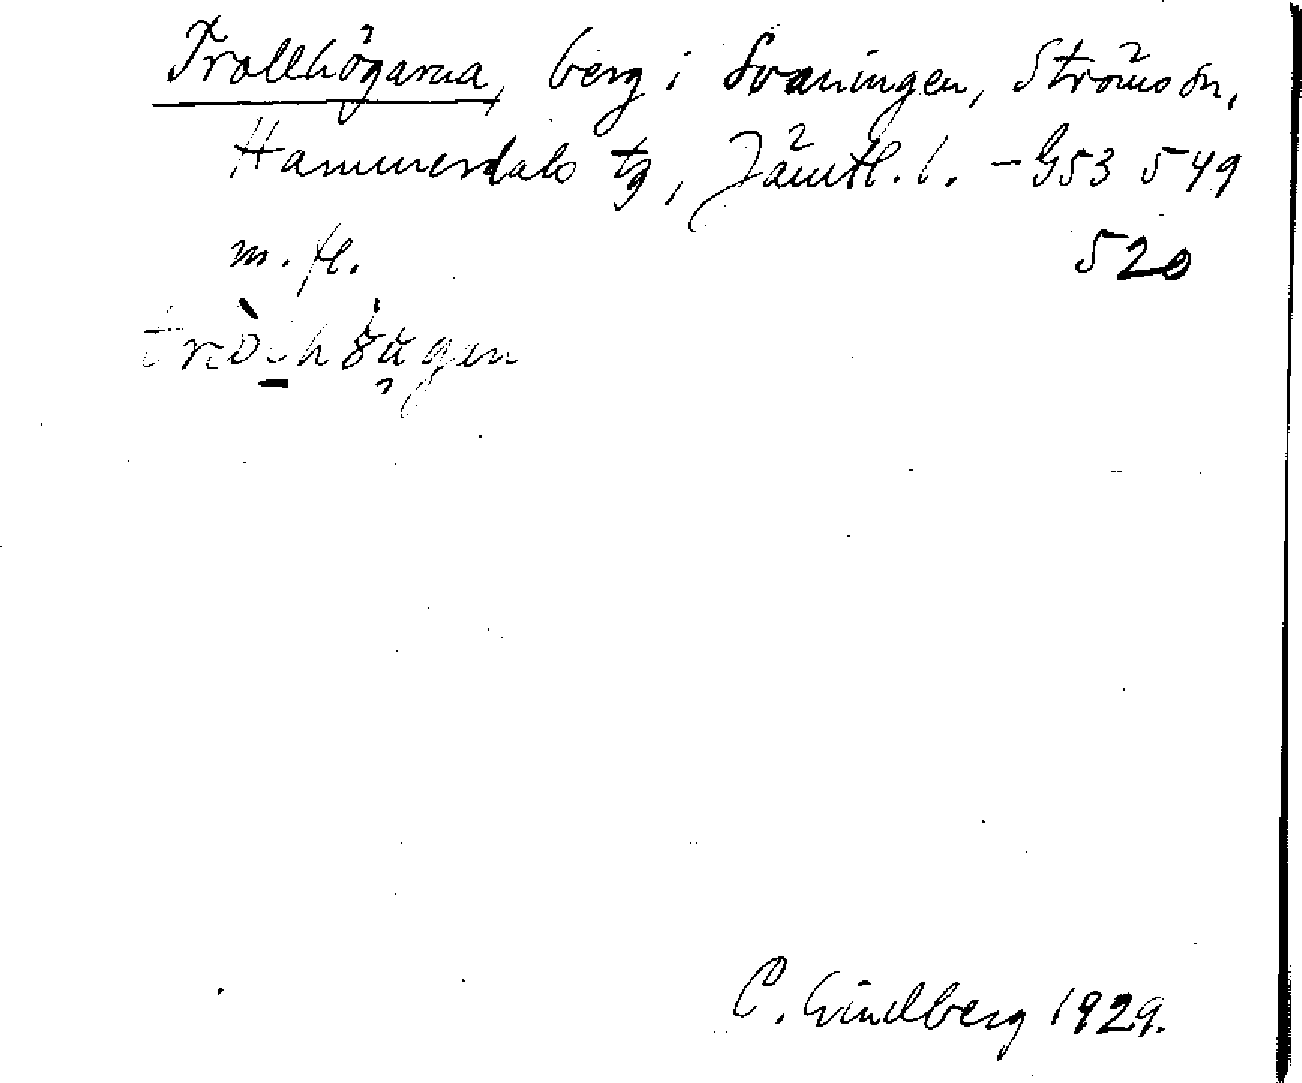 Trollhögarna, berg i Svaningen, Ströms sn,
Hammerdals tg, Jämtl. l. – G53 549
m. fl. 520
C. Lindberg 1929.